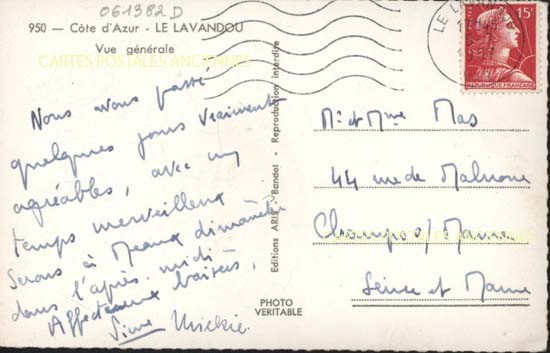 061382 D
950 — Côte d'Azur - LE LAVANDOU
Vue générale
CARTES POSTALES ANCIENNES
Nous avons passé
quelques jours vraiment
agréables, avec un
temps merveilleux
Serons à Meaux dimanche
dans l'après-midi -
Affectueux baisers,
Mickie
Editions ARIS - Bandol - Reproduction interdite
PHOTO
VERITABLE
LE LAVANDOU
15F
REPUBLIQUE FRANÇAISE
Mr et Mme Mas
44 rue de
Champs s/ Marne
CARTES POSTALES ANCIENNES
Seine et Marne